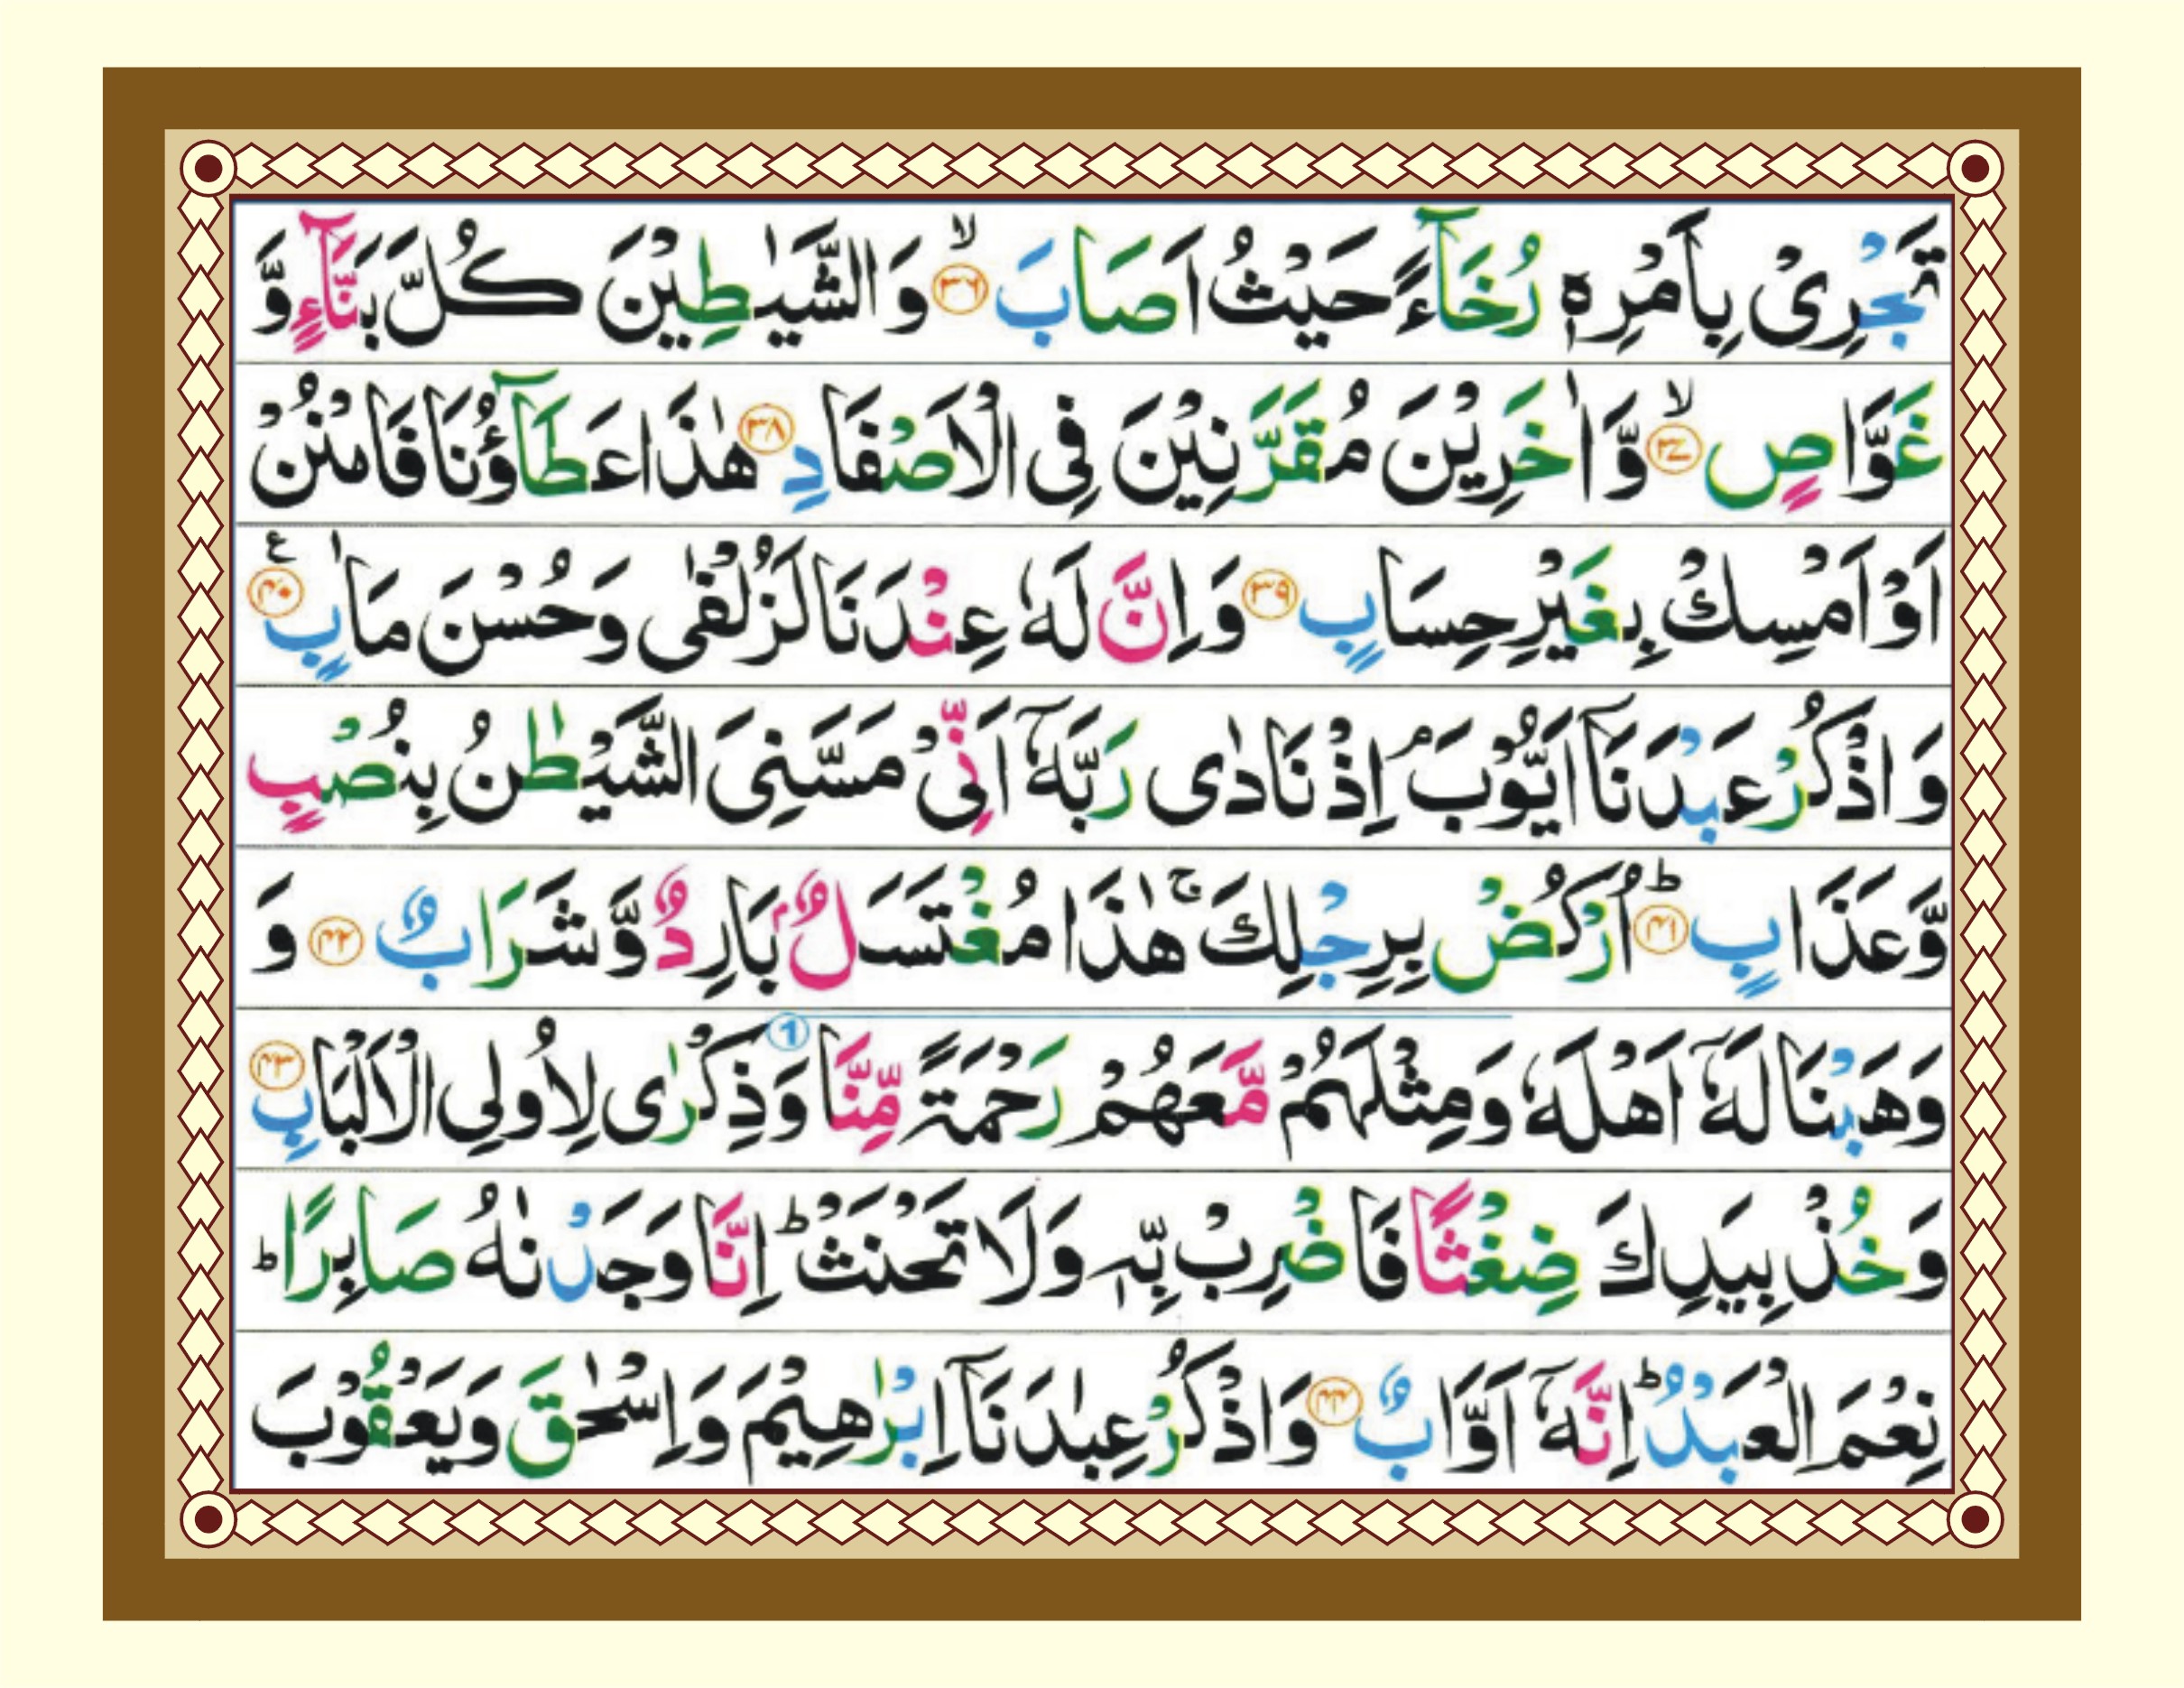 تَجْرِیْ بِاَمْرِهٖ رُخَآءً حَیْثُ اَصَابَ ۙ﴿۳۶﴾ وَ الشَّیٰطِیْنَ كُلَّ بَنَّآءٍ وَّ
غَوَّاصٍ ۙ﴿۳۷﴾ وَّ اٰخَرِیْنَ مُقَرَّنِیْنَ فِی الْاَصْفَادِ ﴿۳۸﴾ هٰذَا عَطَآؤُنَا فَامْنُنْ
اَوْ اَمْسِكْ بِغَیْرِ حِسَابٍ ﴿۳۹﴾ وَ اِنَّ لَهٗ عِنْدَنَا لَزُلْفٰی وَ حُسْنَ مَاٰبٍ ﴿۴۰﴾ ع
وَ اذْكُرْ عَبْدَنَاۤ اَیُّوْبَ ۘ اِذْ نَادٰی رَبَّهٗۤ اَنِّیْ مَسَّنِیَ الشَّیْطٰنُ بِنُصْبٍ
وَّ عَذَابٍ ؕ﴿۴۱﴾ اُرْكُضْ بِرِجْلِكَ ۚ هٰذَا مُغْتَسَلٌۢ بَارِدٌ وَّ شَرَابٌ ﴿۴۲﴾ وَ
وَهَبْنَا لَهٗۤ اَهْلَهٗ وَ مِثْلَهُمْ مَّعَهُمْ رَحْمَةً مِّنَّا ① وَ ذِكْرٰی لِاُولِی الْاَلْبَابِ ﴿۴۳﴾
وَ خُذْ بِیَدِكَ ضِغْثًا فَاضْرِبْ بِّهٖ وَ لَا تَحْنَثْ ؕ اِنَّا وَجَدْنٰهُ صَابِرًا ؕ
نِعْمَ الْعَبْدُ ؕ اِنَّهٗۤ اَوَّابٌ ﴿۴۴﴾ وَ اذْكُرْ عِبٰدَنَاۤ اِبْرٰهِیْمَ وَ اِسْحٰقَ وَ یَعْقُوْبَ